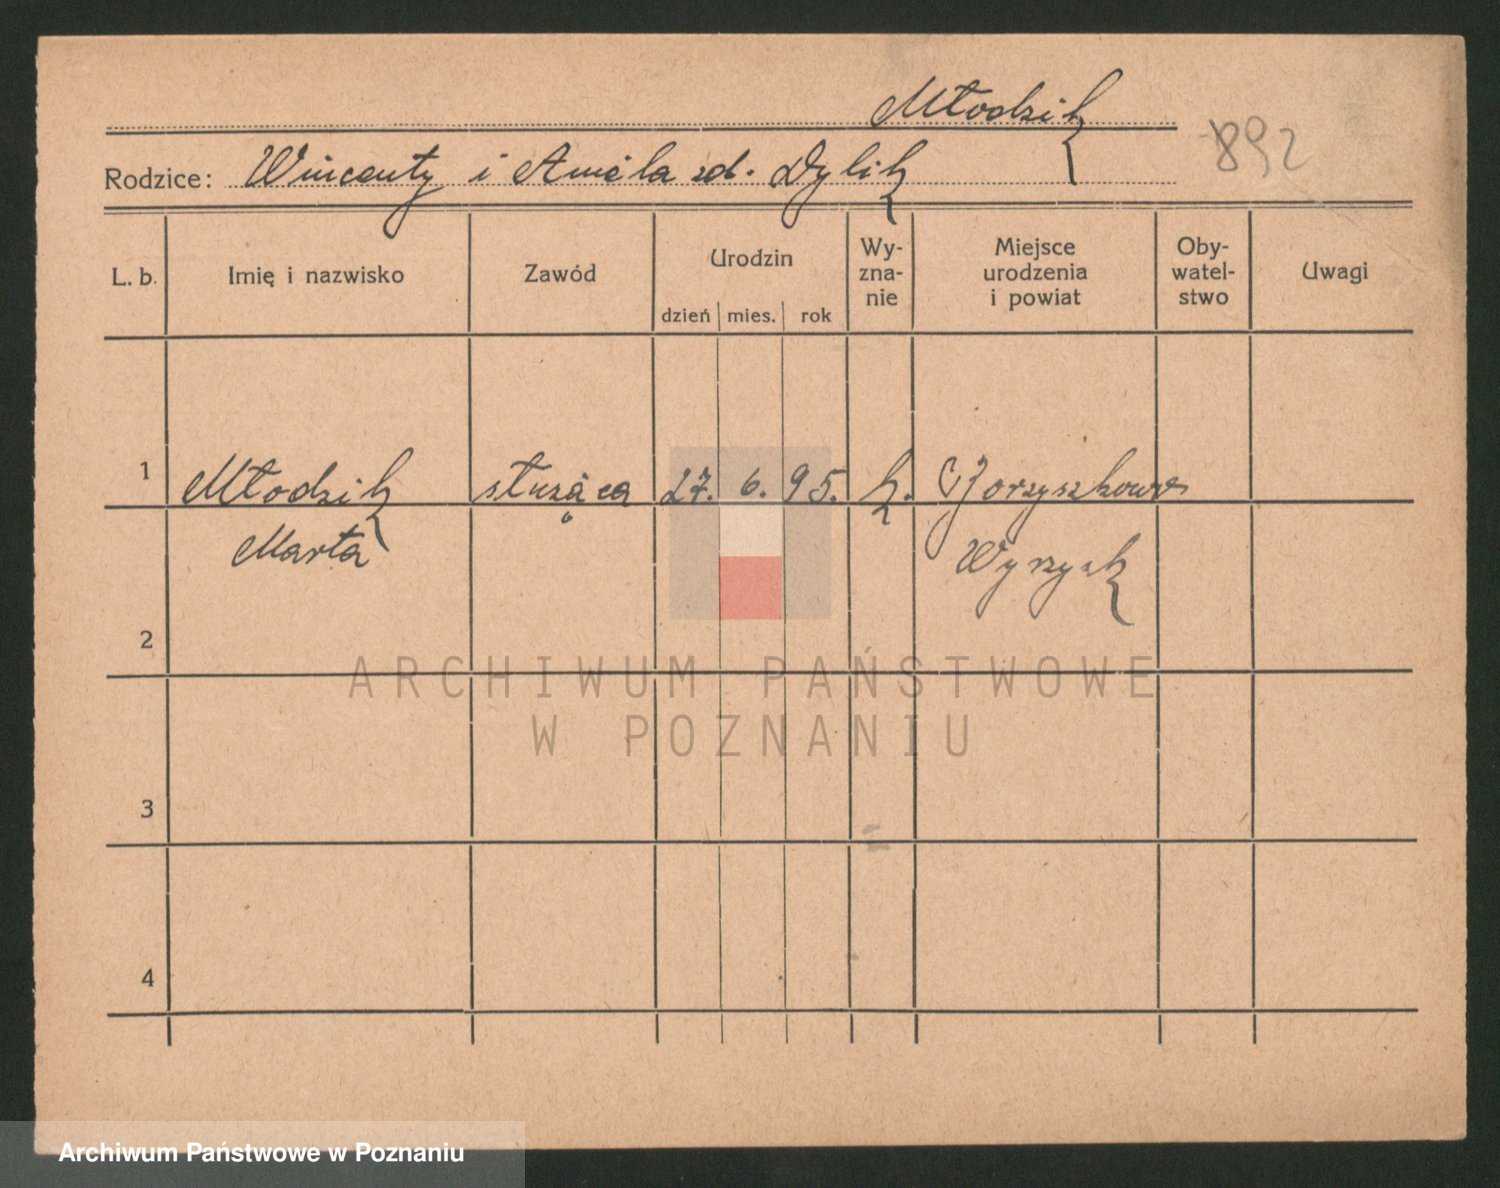 Młodzik
892
Rodzice: Wincenty i Amela zd. Dylik
L. b. Imię i nazwisko Zawód Urodzin dzień mies. rok Wy-zna-nie Miejsce urodzenia i powiat Oby-watel-stwo Uwagi
1 Młodzik służąca 27. 6. 95. k.
Marta Wyrzysk
2
3
4
ARCHIWUM PAŃSTWOWE
W POZNANIU
Archiwum Państwowe w Poznaniu